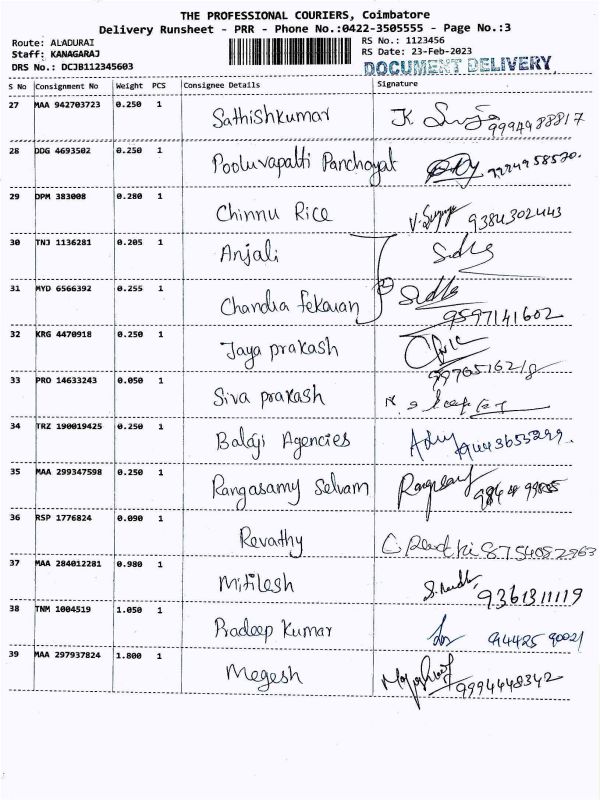 THE PROFESSIONAL COURIERS, Coimbatore
Delivery Runsheet - PRR - Phone No.:0422-3505555 - Page No.:3
Route: ALADURAI RS No.: 1123456
Staff: KANAGARAJ RS Date: 23-Feb-2023
DRS No.: DCJB112345603 DOCUMENT DELIVERY
S No Consignment No Weight PCS Consignee Details Signature
27 MAA 942703723 0.250 1 Sathishkumar 9994488817
28 DDG 4693502 0.250 1 Pooluvapatti Panchayat
29 DPM 383008 0.280 1 Chinnu Rice 9384302443
30 TNJ 1136281 0.205 1 Anjali
31 MYD 6566392 0.255 1 Chandra
9597141602
32 KRG 4470918 0.250 1 Jaya prakash
33 PRO 14633243 0.050 1 Siva prakash
34 TRZ 190019425 0.250 1 Balaji Agencies
35 MAA 299347598 0.250 1 Rangasamy Selvam
36 RSP 1776824 0.090 1 Revathy
37 MAA 284012281 0.980 1 Mitilesh 9361311119
38 TNM 1004519 1.050 1 Pradeep Kumar
39 MAA 297937824 1.800 1 Megesh 9994448342